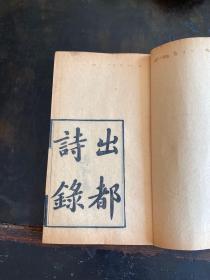 出都
詩錄